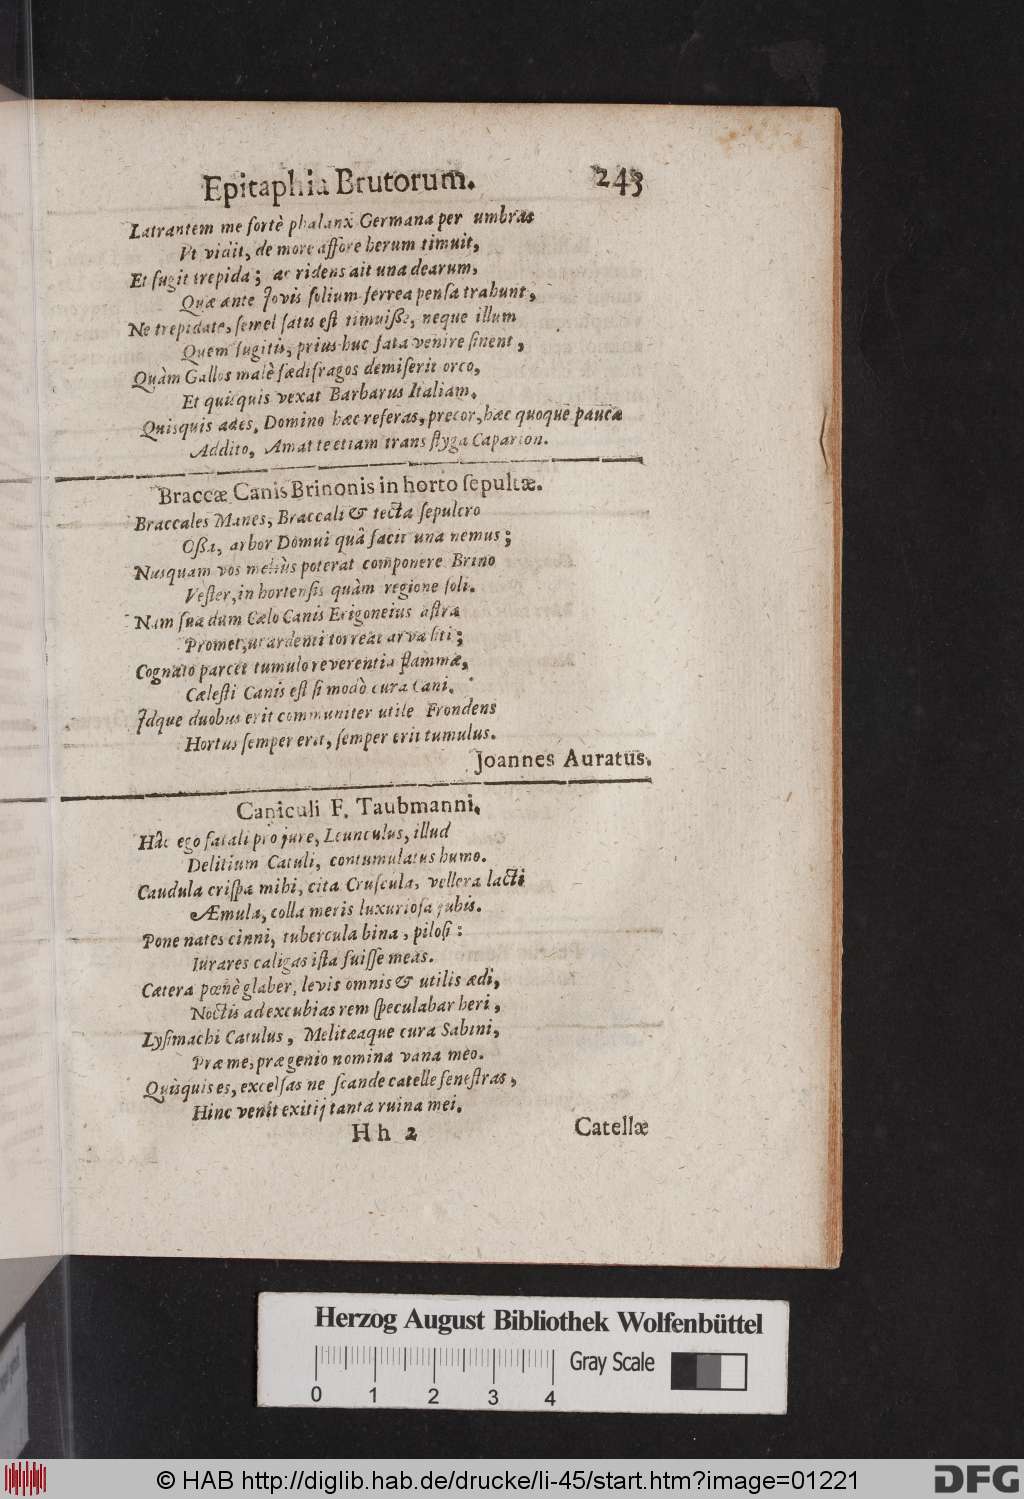 Epitaphia Brutorum. 243
Latrantem me fortè phalanx Germana per umbras
Vt vidit, de more affore herum timuit,
Et fugit trepida; ac ridens ait una dearum,
Quæ ante Jovis solium ferrea pensa trahunt,
Ne trepidate, semel satis est timuisse, neque illum
Quem fugitis, prius huc fata venire sinent,
Quàm Gallos malè fædifragos demiserit orco,
Et quisquis vexat Barbarus Italiam.
Quisquis ades, Domino hæc referas, precor, hæc quoque pauca
Addito, Amat te etiam trans styga Caparion.
Braccæ Canis Brinonis in horto sepultæ.
Braccales Manes, Braccali & tecta sepulcro
Ossa, arbor Domui quâ facit una nemus;
Nusquam vos meliùs poterat componere Brino
Vester, in hortensis quàm regione soli.
Nam sua dum Cælo Canis Erigoneius astra
Promet, ut ardenti torreat arva siti;
Cognato parcet tumulo reverentia flammæ,
Cælesti Canis est si modò cura Cani.
Jdque duobus erit communiter utile Frondens
Hortus semper erit, semper erit tumulus.
Joannes Auratus.
Caniculi F. Taubmanni.
Hâc ego fatali pro jure, Leunculus, illud
Delitium Catuli, contumulatus humo.
Caudula crispa mihi, cita Cruscula, vellera lacti
Æmula, colla meris luxuriosa jubis.
Pone nates cinni, tubercula bina, pilosi:
Iurares caligas ista fuisse meas.
Cætera pœnè glaber, levis omnis & utilis ædi,
Noctis ad excubias rem speculabar heri,
Lysimachi Catulus, Melitæaque cura Sabini,
Præ me, præ genio nomina vana meo.
Quisquis es, excelsas ne scande catelle fenestras,
Hinc venit exitij tanta ruina mei.
Hh 2 Catellæ
Herzog August Bibliothek Wolfenbüttel
Gray Scale
0 1 2 3 4
© HAB http://diglib.hab.de/drucke/li-45/start.htm?image=01221
DFG